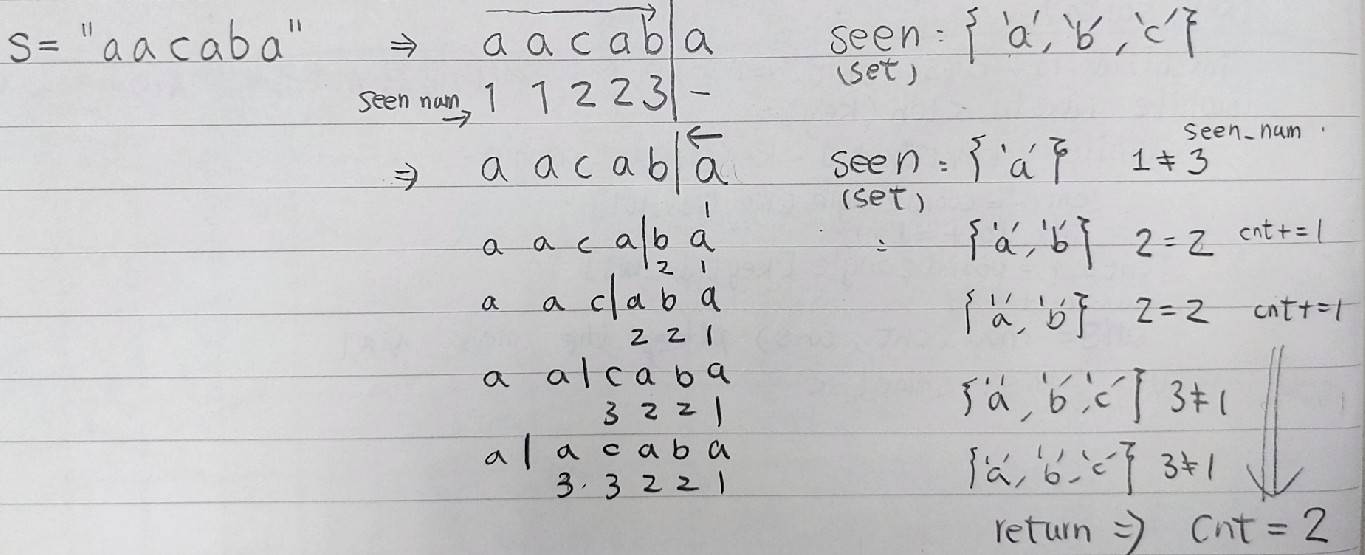 S= "aacaba" ⇒ a a c a b | a seen = { 'a', 'b', 'c' }
(set)
seen num → 1 1 2 2 3 | -
seen_num
⇒ a a c a b | a seen = { 'a' } 1 ≠ 3
1 (set)
a a c a | b a = { 'a', 'b' } 2 = 2 cnt += 1
2 1
a a c | a b a { 'a', 'b' } 2 = 2 cnt += 1
2 2 1
a a | c a b a { 'a', 'b', 'c' } 3 ≠ 1
3 2 2 1
a | a c a b a { 'a', 'b', 'c' } 3 ≠ 1
3 3 2 2 1
return ⇒ Cnt = 2